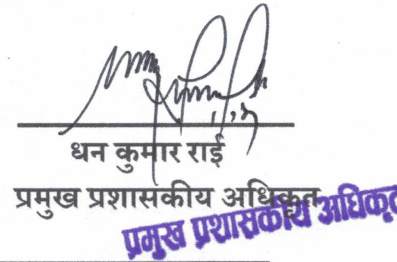 धन कुमार राई
प्रमुख प्रशासकीय अधिकृत
प्रमुख प्रशासकीय अधिकृत